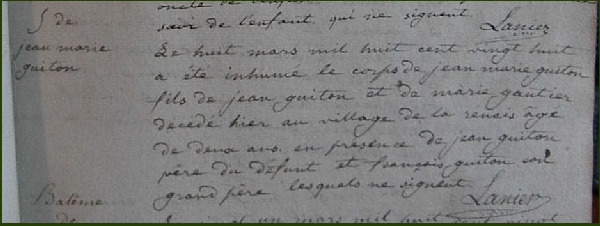 oncle de
S de
saire de l'enfant qui ne signent. Lanier
jean marie
guiton
Le huit mars mil huit cent vingt huit
a été inhumé le corps de jean marie guiton
fils de jean guiton et de marie gautier
décédé hier au village de la renais âgé
de deux ans en présence de jean guiton
père du défunt et françois guiton son
grand père lesquels ne signent
Lanier
Batême
de
un mars mil huit cent vingt